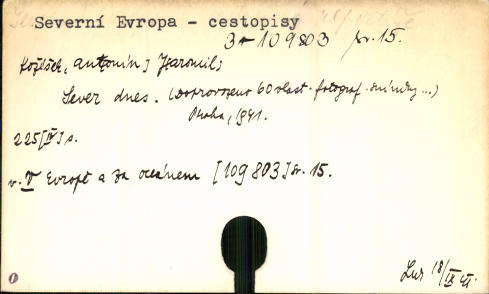 Severní Evropa - cestopisy
3-109803 sv. 15.
Kožíšek, Ant[onín] J[aromil]
Sever dnes. (Doprovozeno 60 vlast. fotograf. snímky...)
Praha, 1941.
225[IV] s.
v: V Evropě a za oceánem [109 803] sv. 15.
18/IX